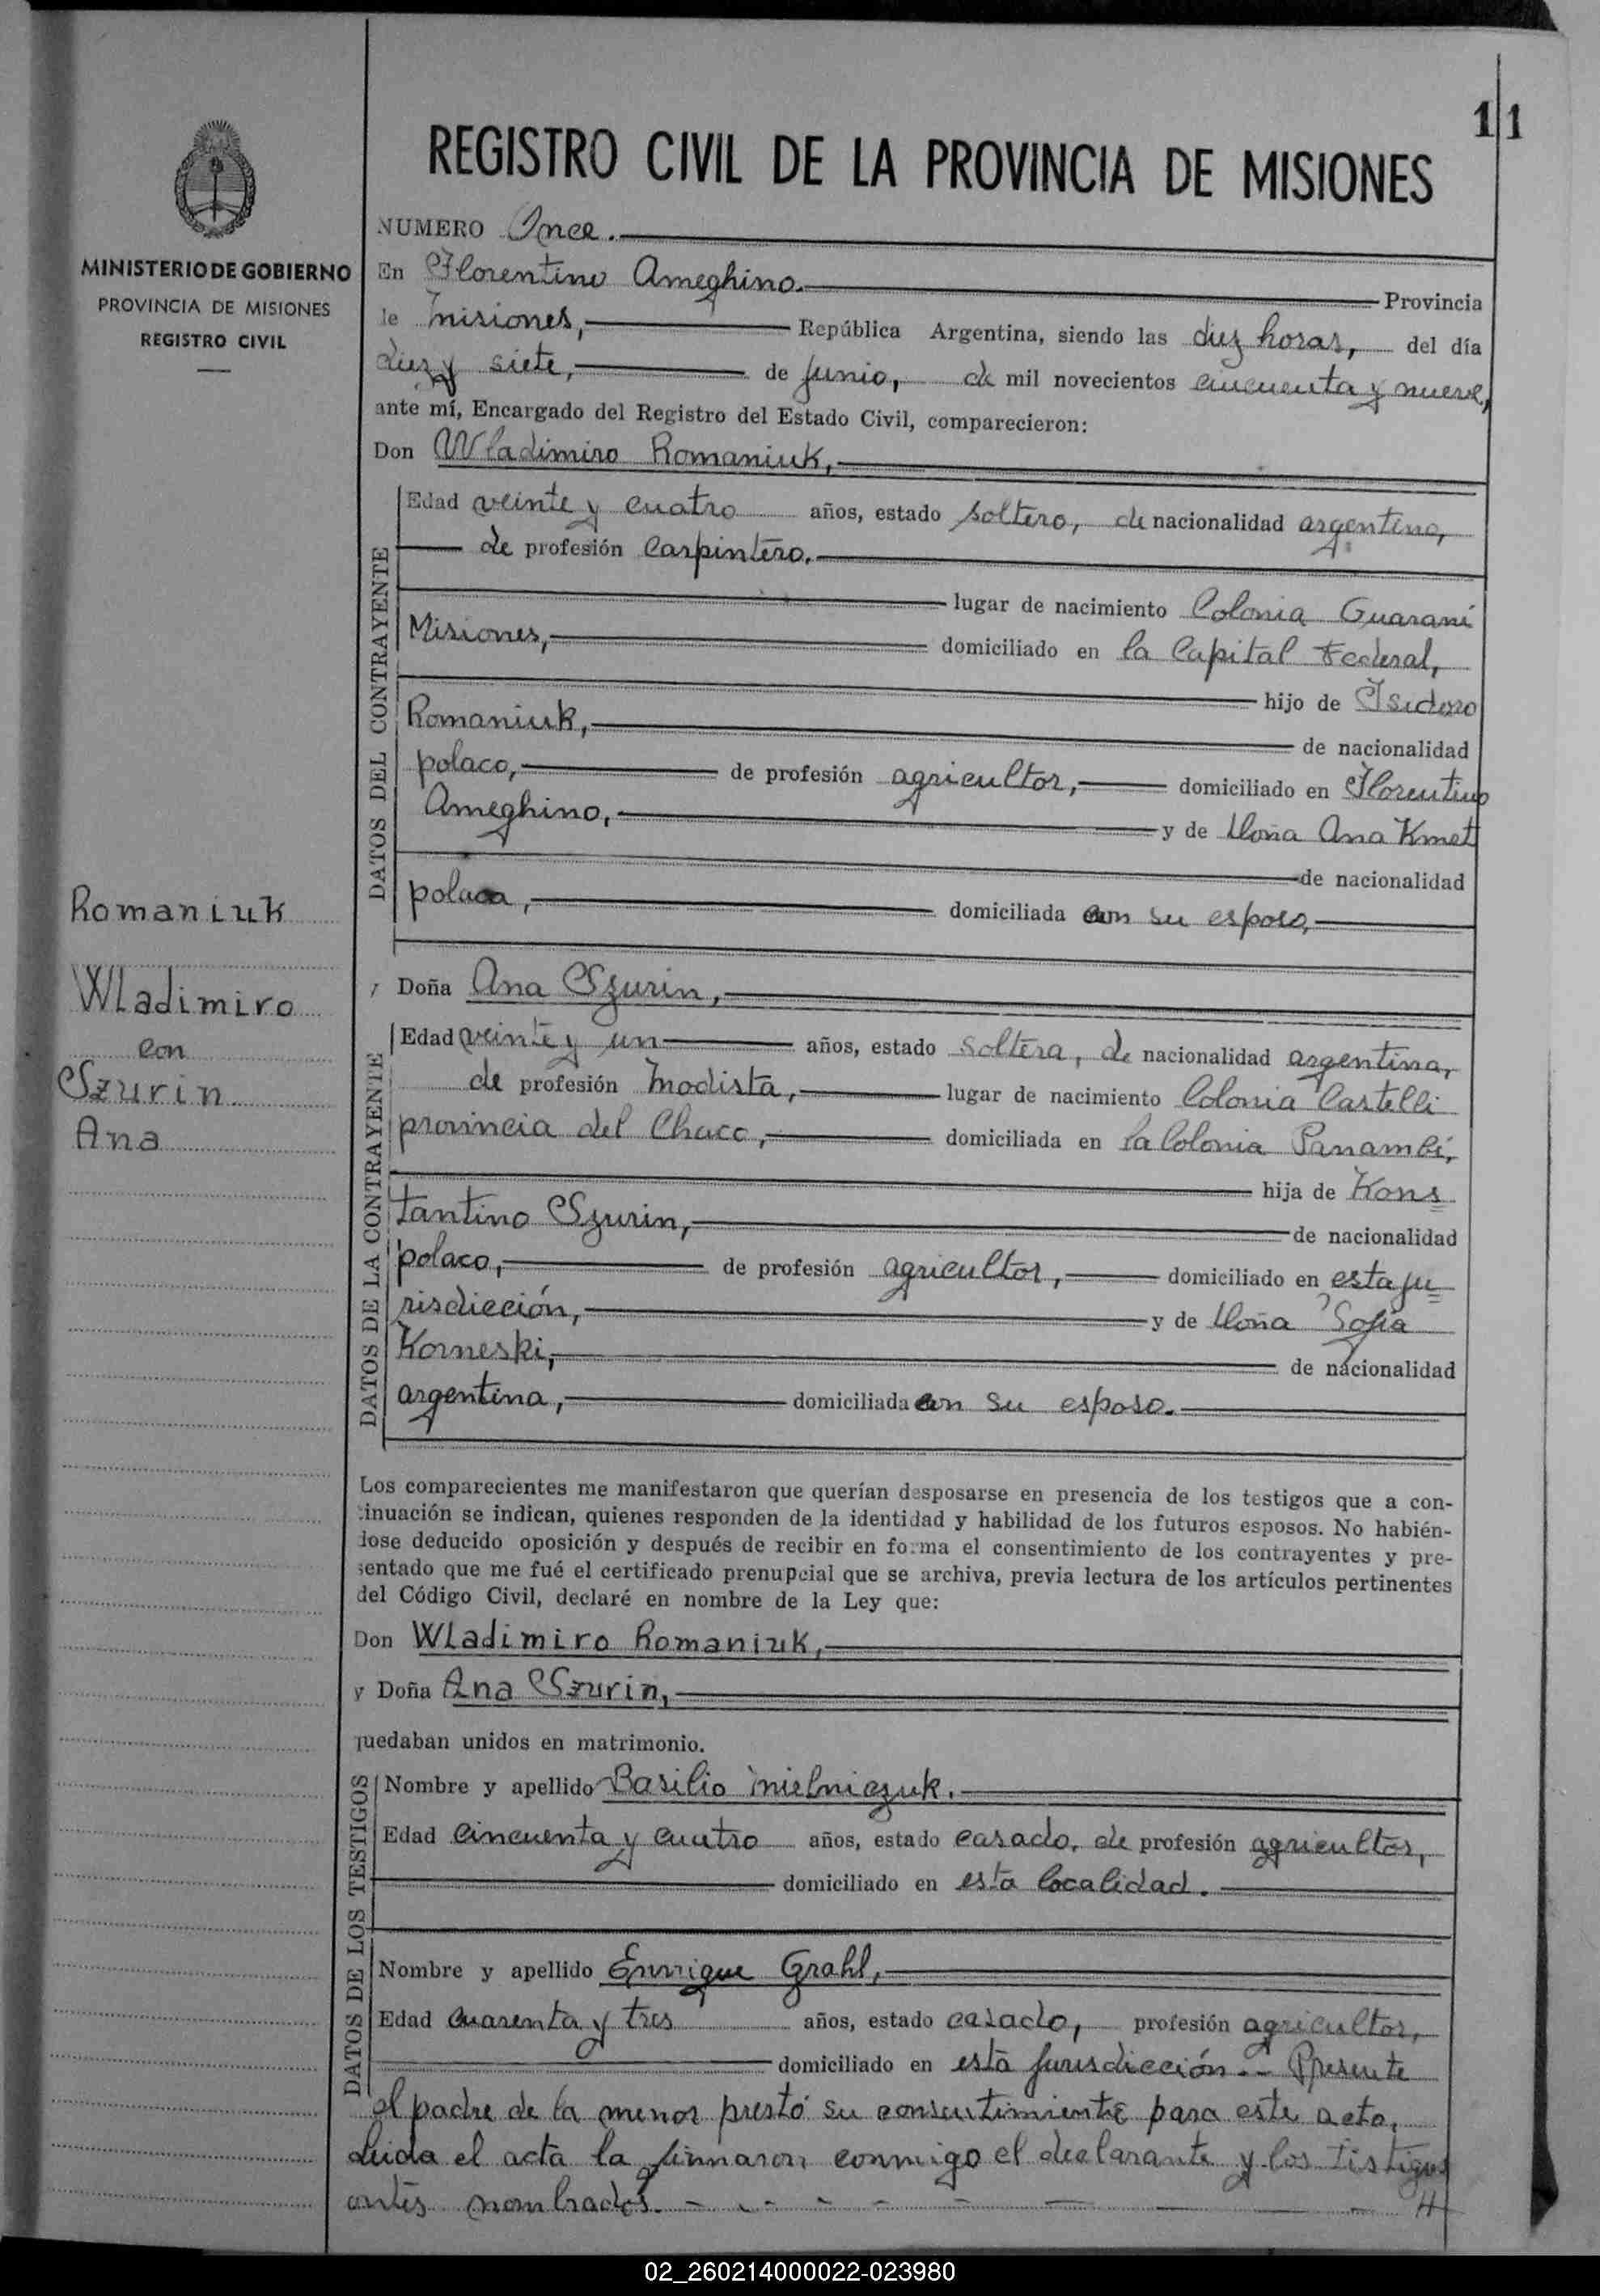 11
REGISTRO CIVIL DE LA PROVINCIA DE MISIONES
MINISTERIO DE GOBIERNO
PROVINCIA DE MISIONES
REGISTRO CIVIL
Romaniuk
Wladimiro
con
Szurin
Ana
NUMERO Once.
En Florentino Ameghino. Provincia
de Misiones, República Argentina, siendo las diez horas, del día
diez y siete, de Junio, de mil novecientos cincuenta y nueve,
ante mí, Encargado del Registro del Estado Civil, comparecieron:
Don Wladimiro Romaniuk,
DATOS DEL CONTRAYENTE
Edad veinte y cuatro años, estado soltero, de nacionalidad argentino,
de profesión Carpintero.
lugar de nacimiento Colonia Guaraní
Misiones, domiciliado en la Capital Federal,
hijo de Isidoro
Romaniuk, de nacionalidad
polaco, de profesión agricultor, domiciliado en Florentino
Ameghino, y de Doña Ana Kmet
de nacionalidad
polaca, domiciliada con su esposo,
y Doña Ana Szurin,
DATOS DE LA CONTRAYENTE
Edad veinte y un años, estado soltera, de nacionalidad argentina,
de profesión Modista, lugar de nacimiento Colonia Castelli
provincia del Chaco, domiciliada en la Colonia Panambí,
hija de Kons
tantino Szurin, de nacionalidad
polaco, de profesión agricultor, domiciliado en esta ju
risdicción, y de Doña Sofia
Korneski, de nacionalidad
argentina, domiciliada con su esposo.
Los comparecientes me manifestaron que querían desposarse en presencia de los testigos que a con-
tinuación se indican, quienes responden de la identidad y habilidad de los futuros esposos. No habién-
dose deducido oposición y después de recibir en forma el consentimiento de los contrayentes y pre-
sentado que me fué el certificado prenupcial que se archiva, previa lectura de los artículos pertinentes
del Código Civil, declaré en nombre de la Ley que:
Don Wladimiro Romaniuk,
y Doña Ana Szurin,
quedaban unidos en matrimonio.
DATOS DE LOS TESTIGOS
Nombre y apellido Basilio Mielniczuk.
Edad cincuenta y cuatro años, estado casado, de profesión agricultor,
domiciliado en esta localidad.
Nombre y apellido Enrrique Grahl,
Edad cuarenta y tres años, estado casado, profesión agricultor,
domiciliado en esta jurisdicción.- Presente
el padre de la menor prestó su consentimiento para este acto.
Leida el acta la firmaron conmigo el declarante y los testigos
antes nombrados.
02_260214000022-023980